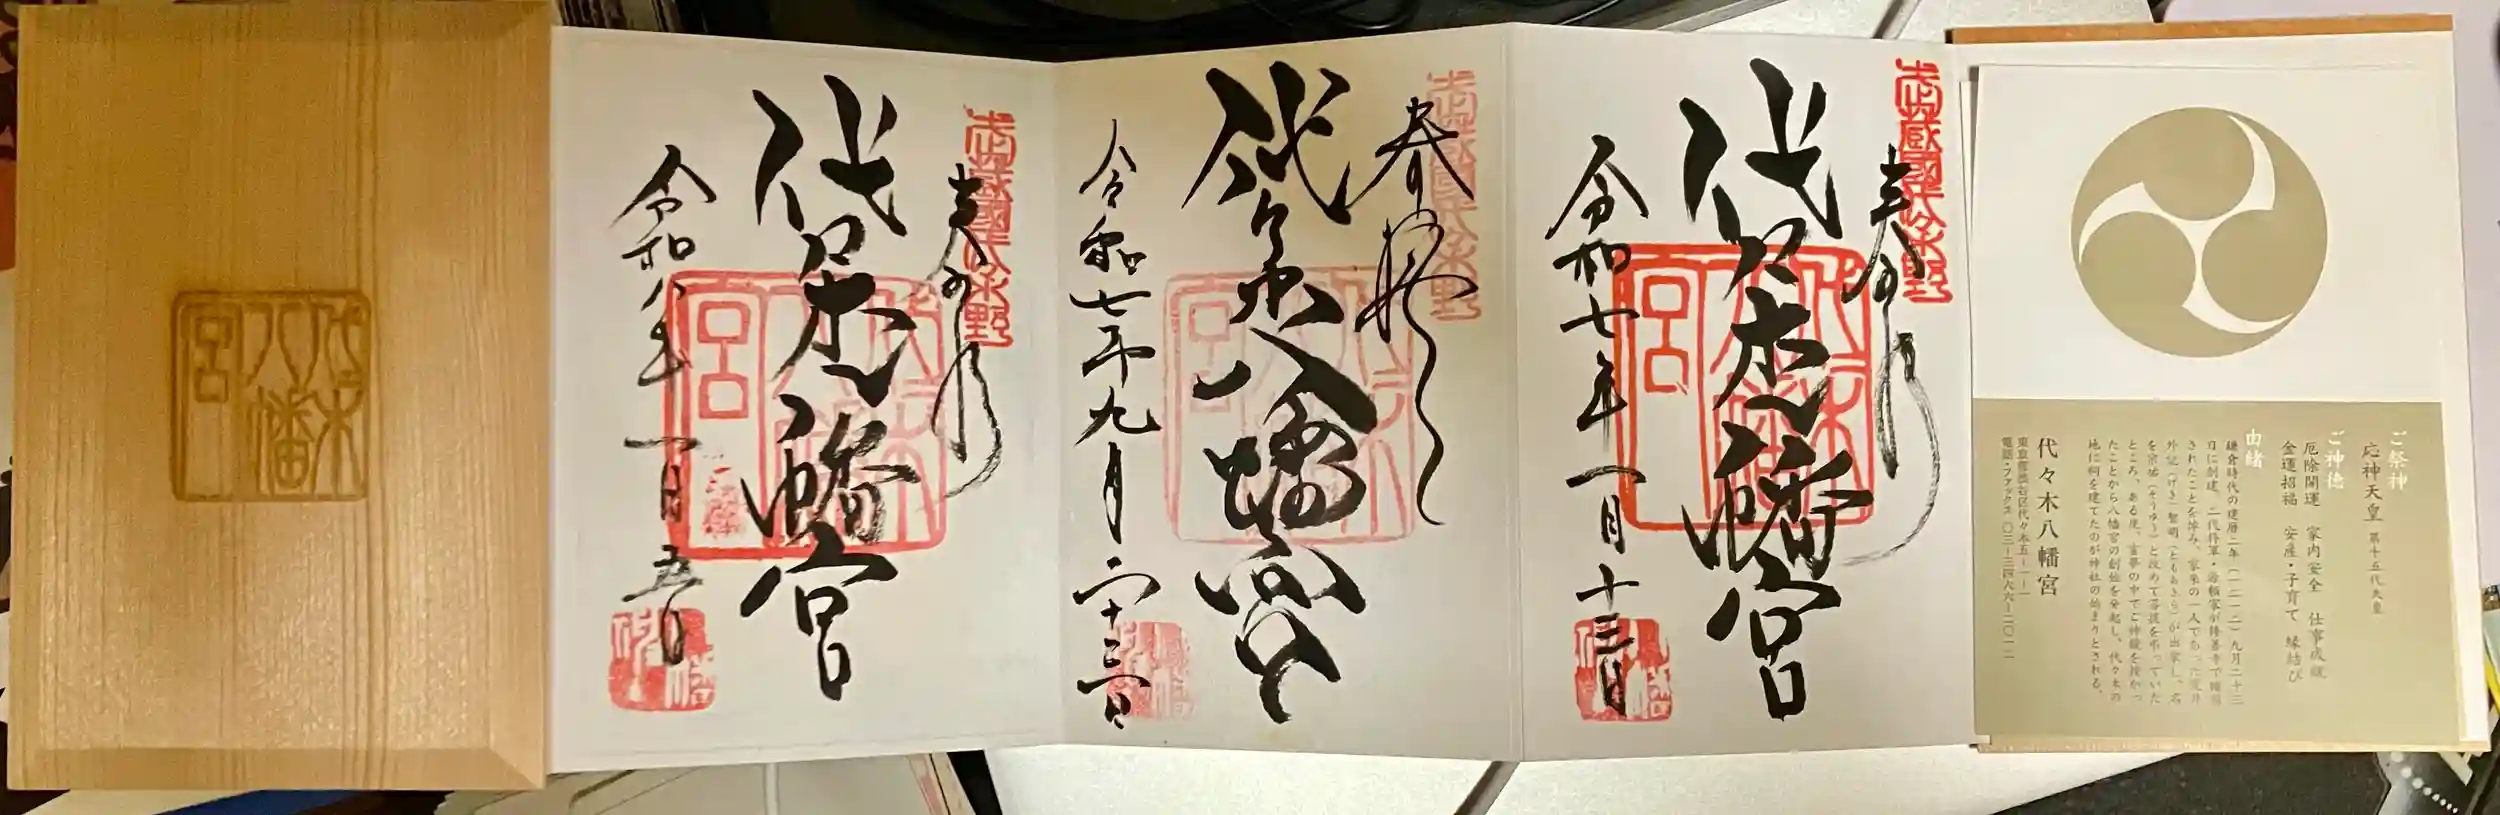 ご祭神
応神天皇 第十五代天皇
ご神徳
厄除開運 家内安全 仕事成就
金運招福 安産・子育て 縁結び
由緒
鎌倉時代の建暦二年(一二一二)九月二十三
日に創建。二代将軍・源頼家が修善寺で暗殺
されたことを悼み、家来の一人であった荒井
外記(げき)智明(ともあきら)が出家し、名
を宗祐(そうゆう)と改めて菩提を弔っていた
ところ、ある夜、霊夢の中でご神鏡を授かっ
たことから八幡宮の創祀を発起し、代々木の
地に祠を建てたのが神社の始まりとされる。
代々木八幡宮
東京都渋谷区代々木五-一-一
電話・ファックス 〇三-三四六六-二〇一二
武蔵國代々木野
奉拝
代々木八幡宮
代々木八幡宮
令和七年一月十三日
武蔵國代々木野
奉拝
代々木八幡宮
代々木八幡宮
令和七年九月二十三日
武蔵國代々木野
奉拝
代々木八幡宮
代々木八幡宮
令和八年一月五日
代々木
八幡
宮